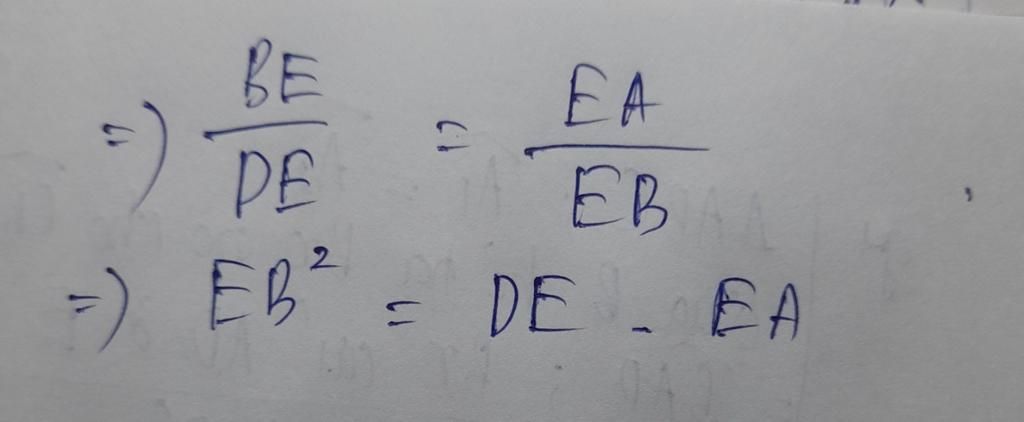 => BE/DE = EA/EB
=> EB² = DE . EA